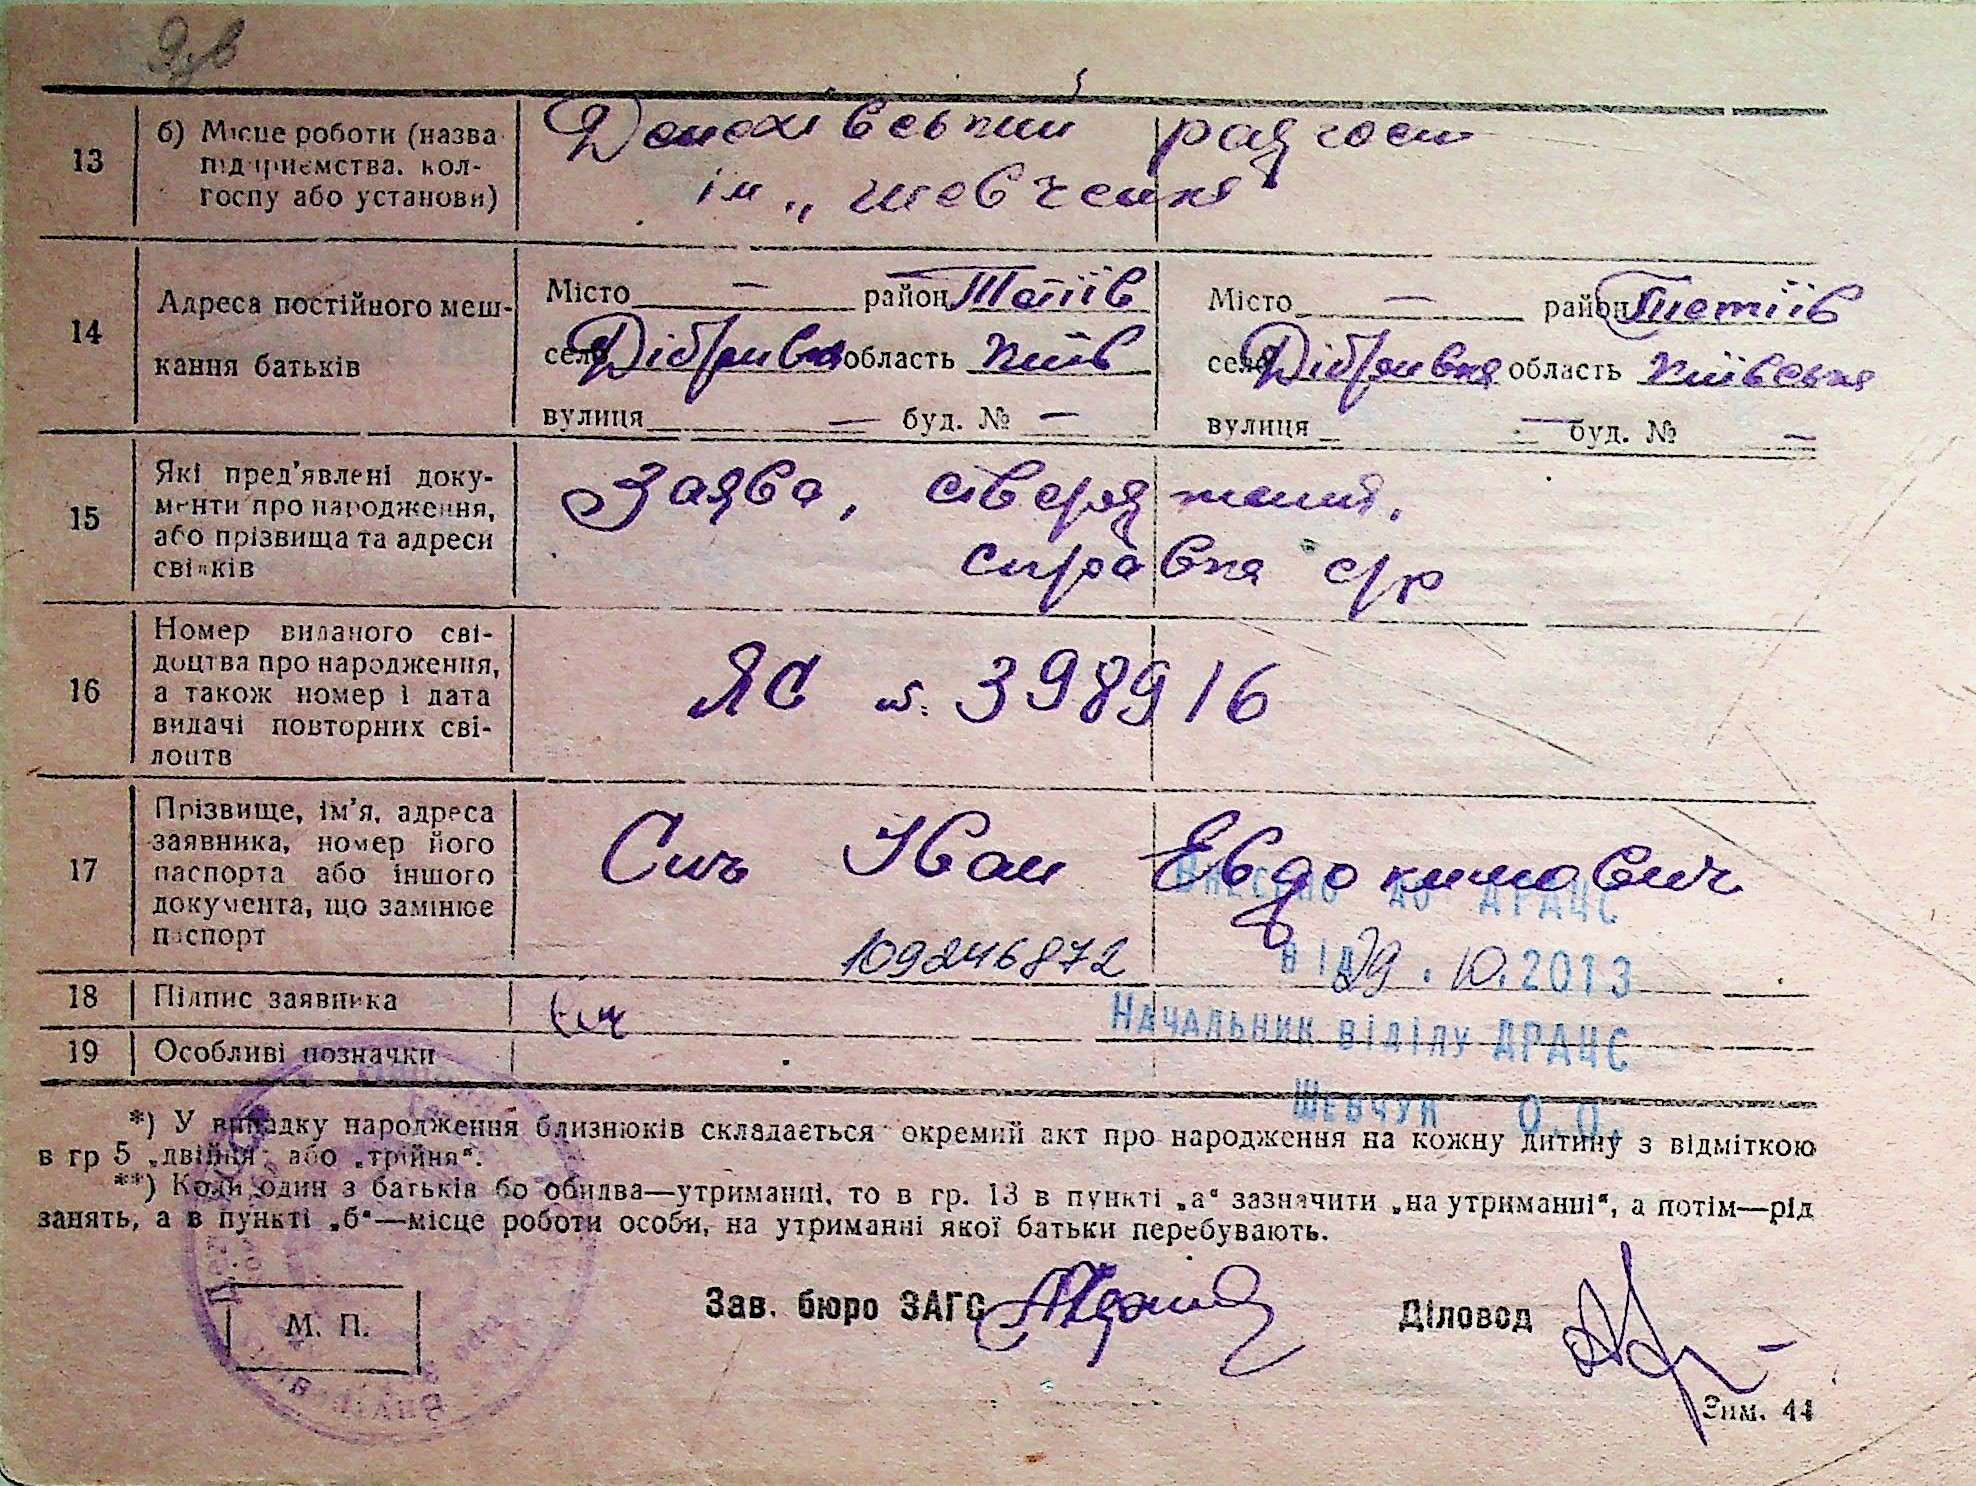 13
б) Місце роботи (назва
підприємства, кол-
госпу або установи)
радгосп
ім „ Шевченка
14
Адреса постійного меш-
кання батьків
Місто — район Тетіїв
село Дібрівка область Київ
вулиця — буд. № —
Місто — район Тетіїв
село Дібрівка область Київська
вулиця — буд. № —
15
Які пред'явлені доку-
менти про народження,
або прізвища та адреси
свідків
Заява, ствердження,
справка с/р
16
Номер виданого сві-
доцтва про народження,
а також номер і дата
видачі повторних сві-
доцтв
ЯС № 398916
17
Прізвище, ім'я, адреса
заявника, номер його
паспорта або іншого
документа, що замінює
паспорт
Сич Іван Евдокимович
109246872
Внесено до ДРАЦС
від 29.10.2013
Начальник відділу ДРАЦС
Шевчук О.О.
18
Підпис заявника
Сич
19
Особливі позначки
*) У випадку народження близнюків складається окремий акт про народження на кожну дитину з відміткою
в гр 5 „двійня" або „трійня".
**) Коли один з батьків бо обидва—утриманці, то в гр. 13 в пункті „а" зазначити „на утриманні", а потім—рід
занять, а в пункті „б"—місце роботи особи, на утриманні якої батьки перебувають.
М. П.
Зав. бюро ЗАГС
Діловод
Зим. 44